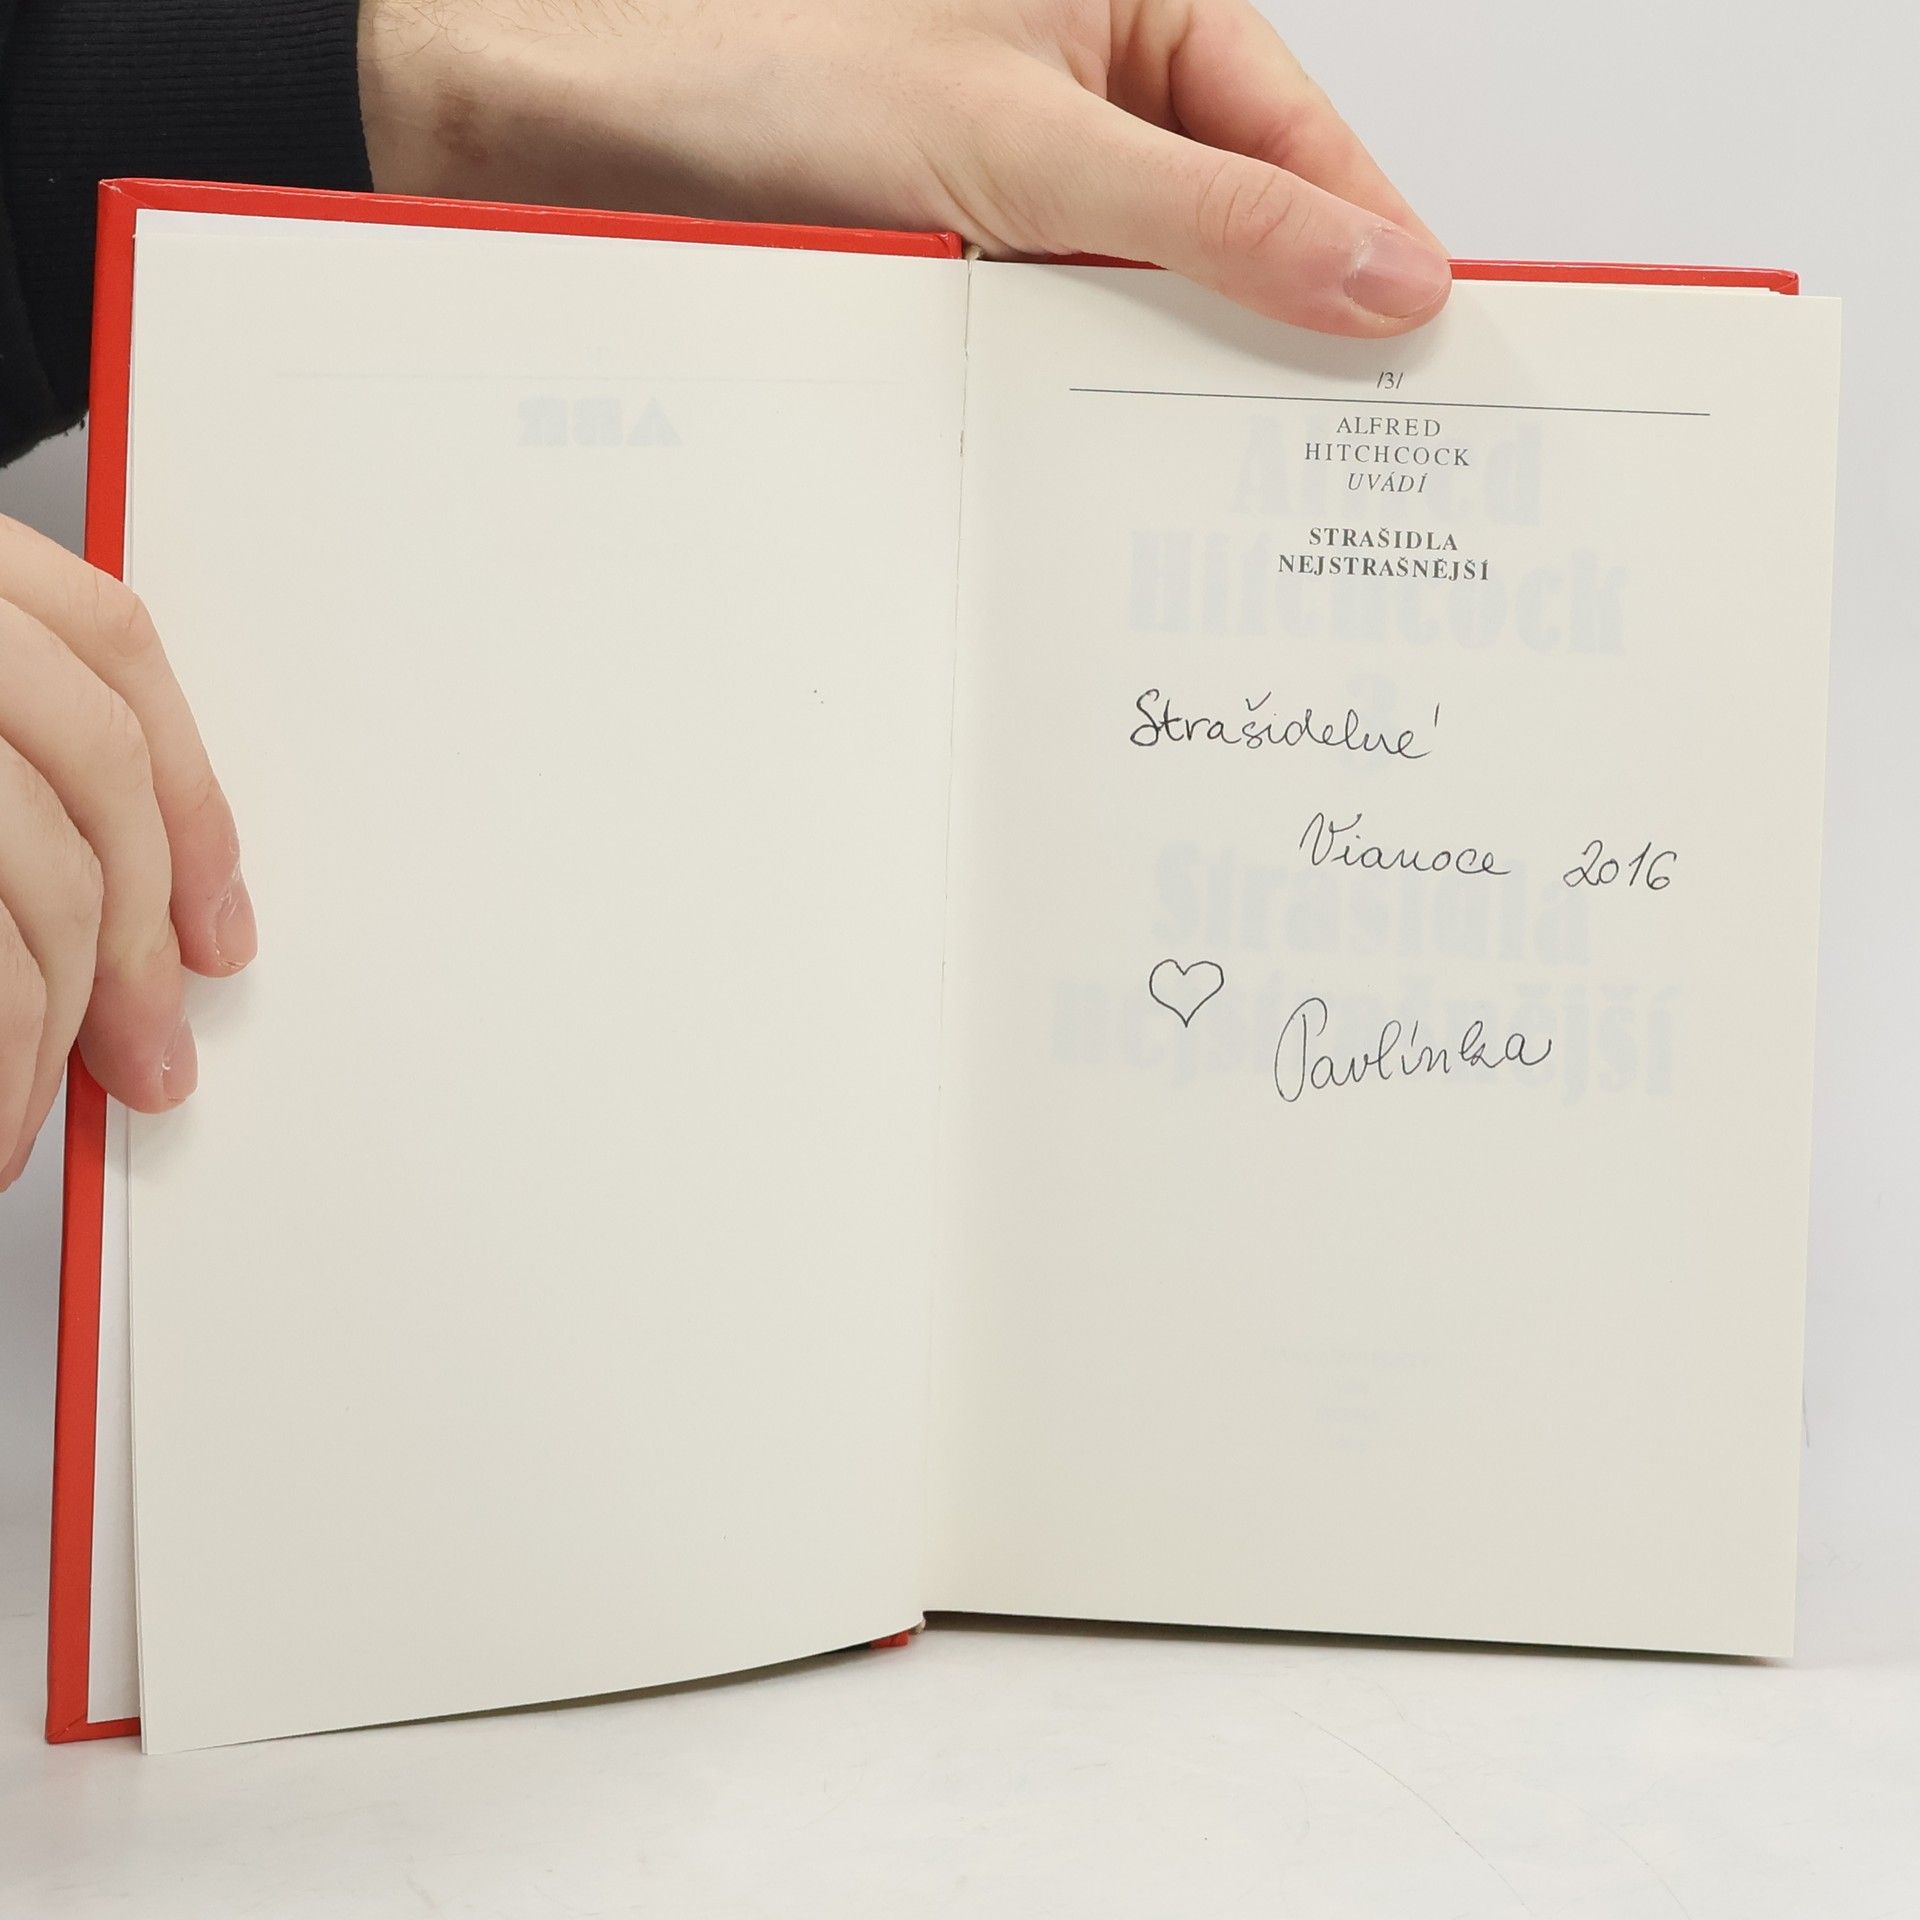 /3/
ALFRED
HITCHCOCK
UVÁDÍ
STRAŠIDLA
NEJSTRAŠNĚJŠÍ
Strašidelné
Vianoce 2016
Pavlínka